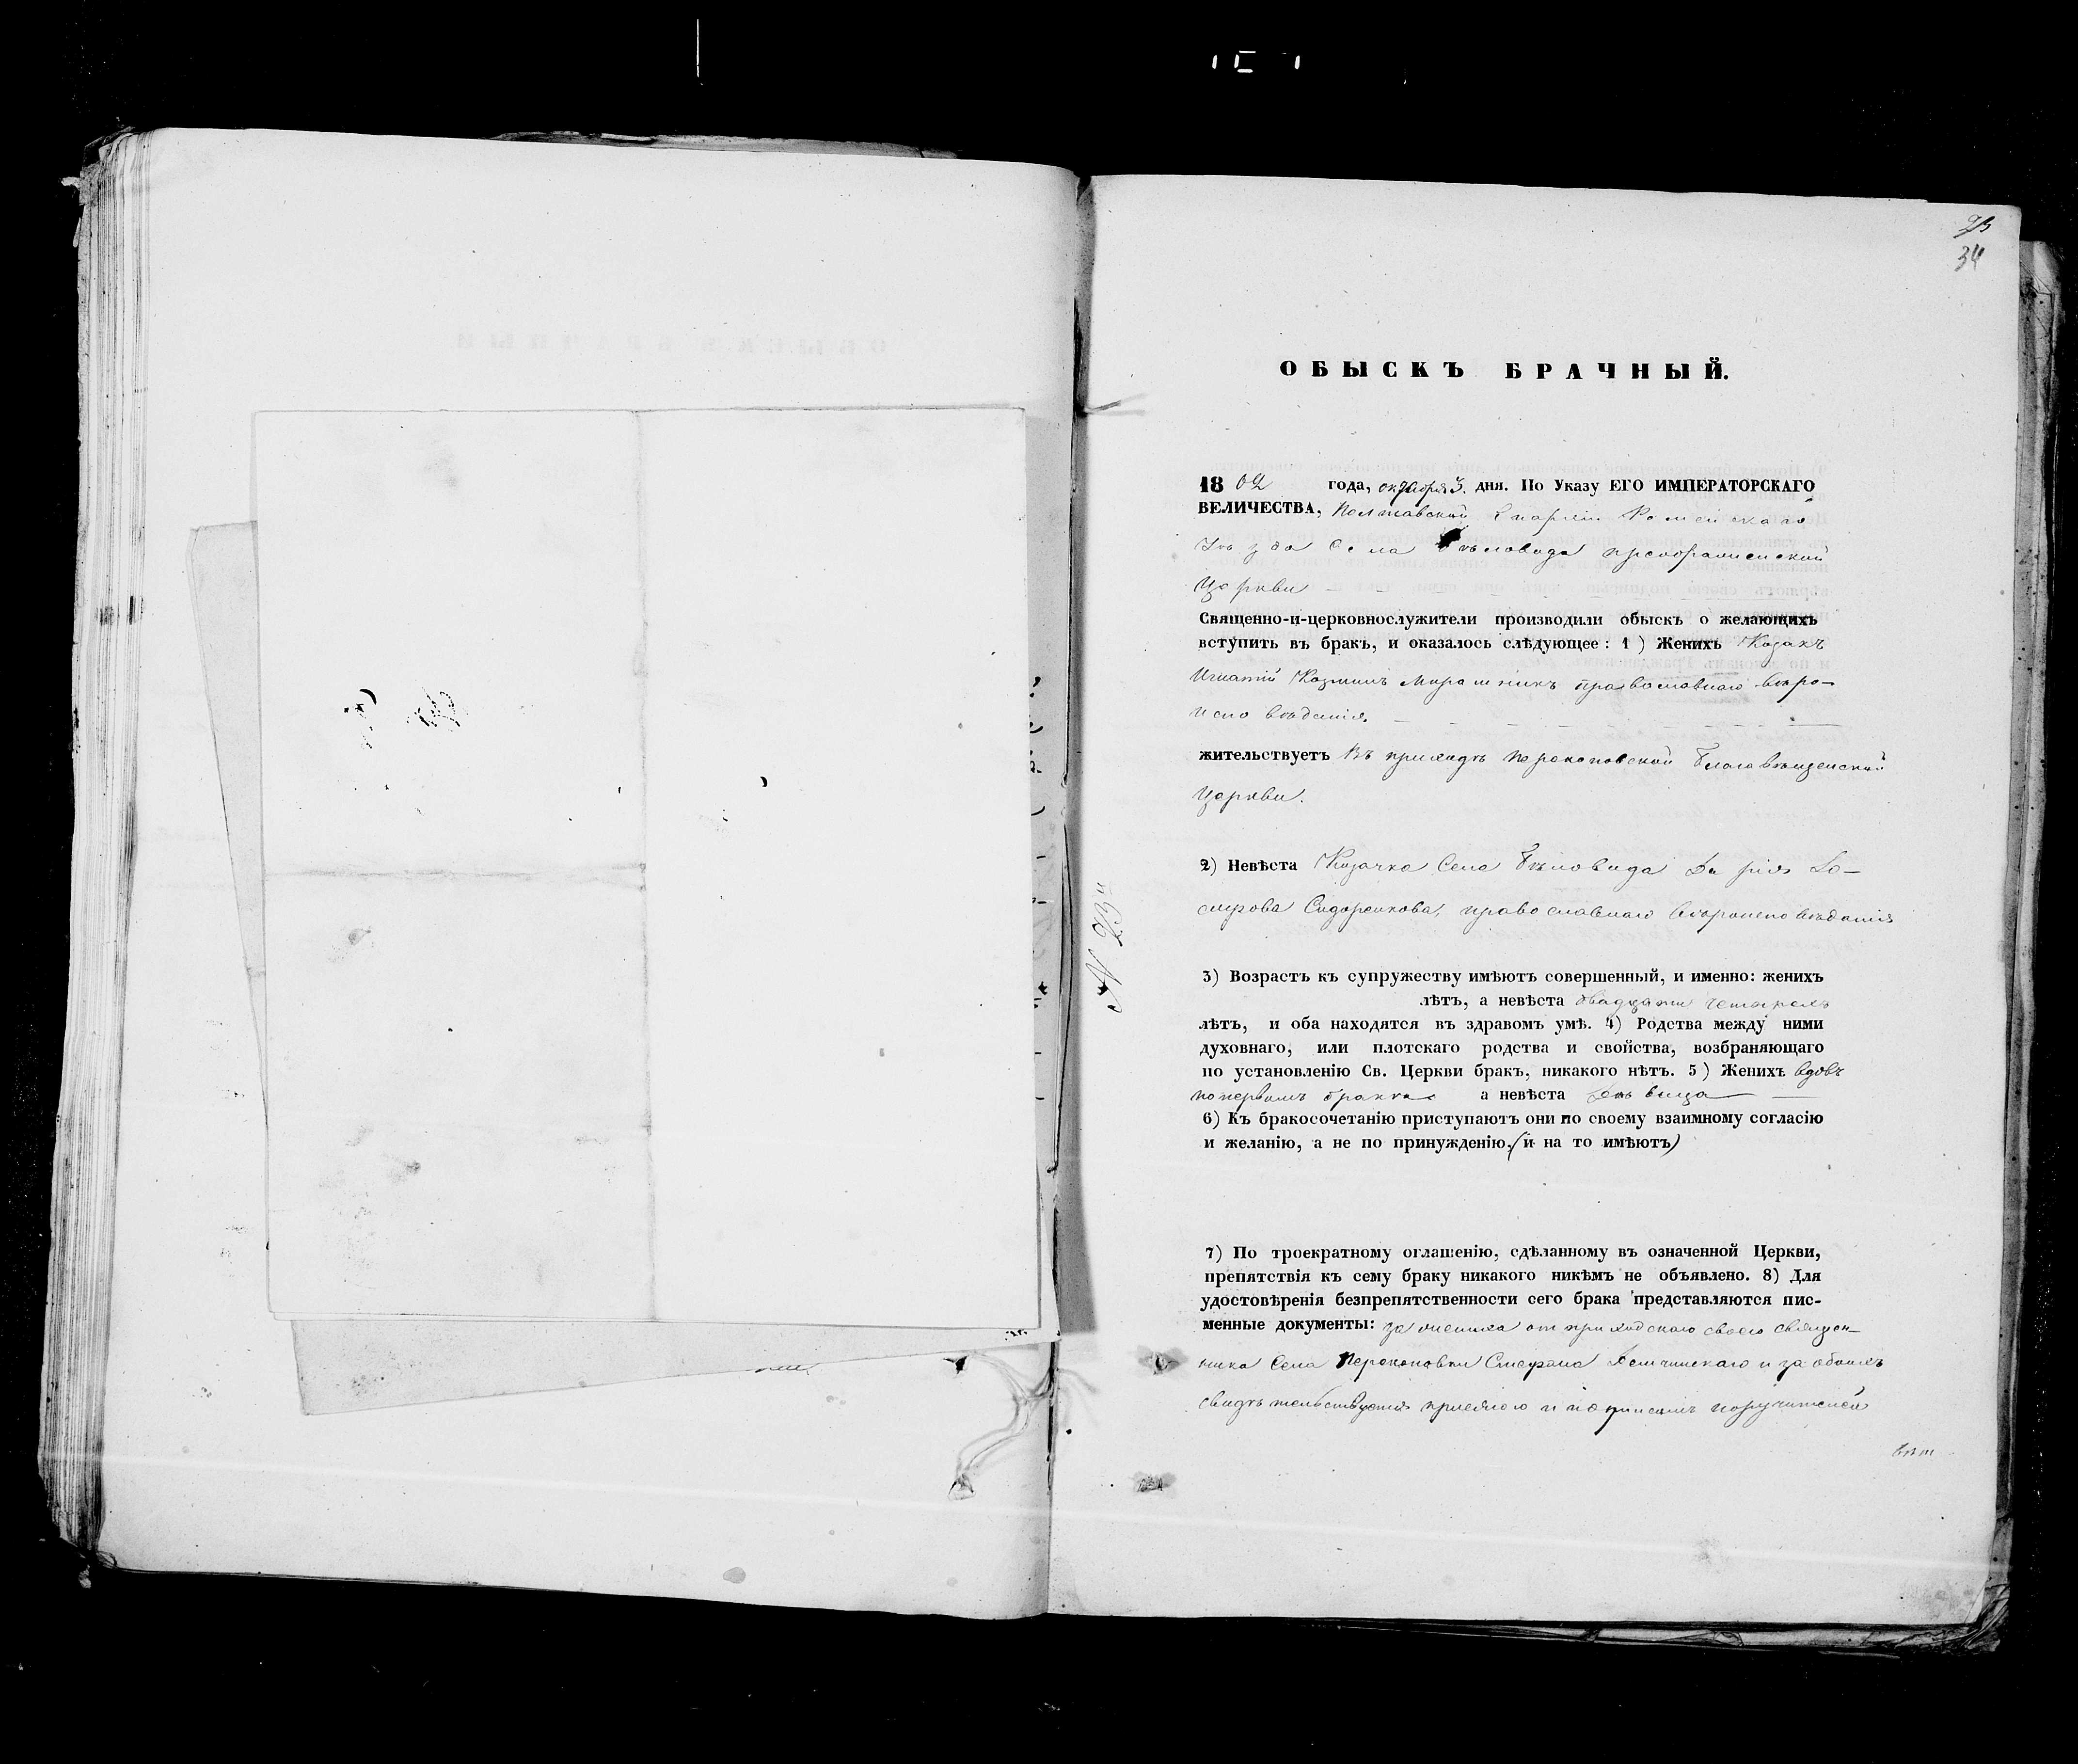 34
ОБЫСКЪ БРАЧНЫЙ.
18 года, октября 3. дня. По Указу ЕГО ИМПЕРАТОРСКАГО
ВЕЛИЧЕСТВА, Полтавской Епархіи Роменскаго
Уѣзда Села Бѣловода преображенской
Церкви
Священно-и-церковнослужители производили обыскъ о желающихъ
вступить въ бракъ, и оказалось слѣдующее: 1) Женихъ Козакъ
Игнатій Козминъ Мирошникъ православнаго вѣро-
исповѣданія.
жительствуетъ Въ приходѣ Перекоповской Благовѣщенской
Церкви.
2) Невѣста Козачка Села Бѣловода Дарія
Сидоренкова, православнаго вѣроисповѣданія
№ 23й
3) Возрастъ къ супружеству имѣютъ совершенный, и именно: женихъ
лѣтъ, а невѣста двадцати четырехъ
лѣтъ, и оба находятся въ здравомъ умѣ. 4) Родства между ними
духовнаго, или плотскаго родства и свойства, возбраняющаго
по установленію Св. Церкви бракъ, никакого нѣтъ. 5) Женихъ вдовъ
по первомъ бракѣ а невѣста дѣвица
6) Къ бракосочетанію приступаютъ они по своему взаимному согласію
и желанію, а не по принужденію, (и на то имѣютъ)
7) По троекратному оглашенію, сдѣланному въ означенной Церкви,
препятствія къ сему браку никакого никѣмъ не объявлено. 8) Для
удостовѣренія безпрепятственности сего брака представляются пис-
менные документы: за жениха отъ приходскаго своего священ-
ника Села Перекоповки Стефана и за обоихъ
свидѣтельствуется присягою и подписомъ поручителей